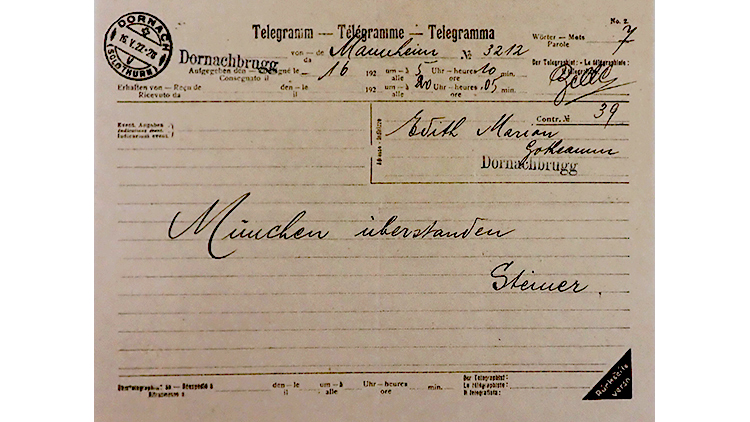 No. 2.
Telegramm — Télégramme — Telegramma
DORNACH
(SOLOTHURN)
Wörter — Mots
Parole
7
Dornachbrugg
von — de
da
Mannheim
№ 3212
Aufgegeben den — Consigné le
Consegnato il
16
192
um — à
alle
5
Uhr — heures
ore
10
min.
Der Telegraphist: — Le télégraphiste:
Erhalten von — Reçu de
Ricevuto da
den — le
il
192
um — à
alle
20
Uhr — heures
ore
05
min.
Contr. № 39
Event. Angaben
Adresse - Indirizzo
Edith Marion
Goetheanum
Dornachbrugg
München überstanden
Steiner.
den — le
il
um — à
alle
Uhr — heures
ore
min.
Der Telegraphist:
Le télégraphiste:
Il telegrafista:
Rückseite